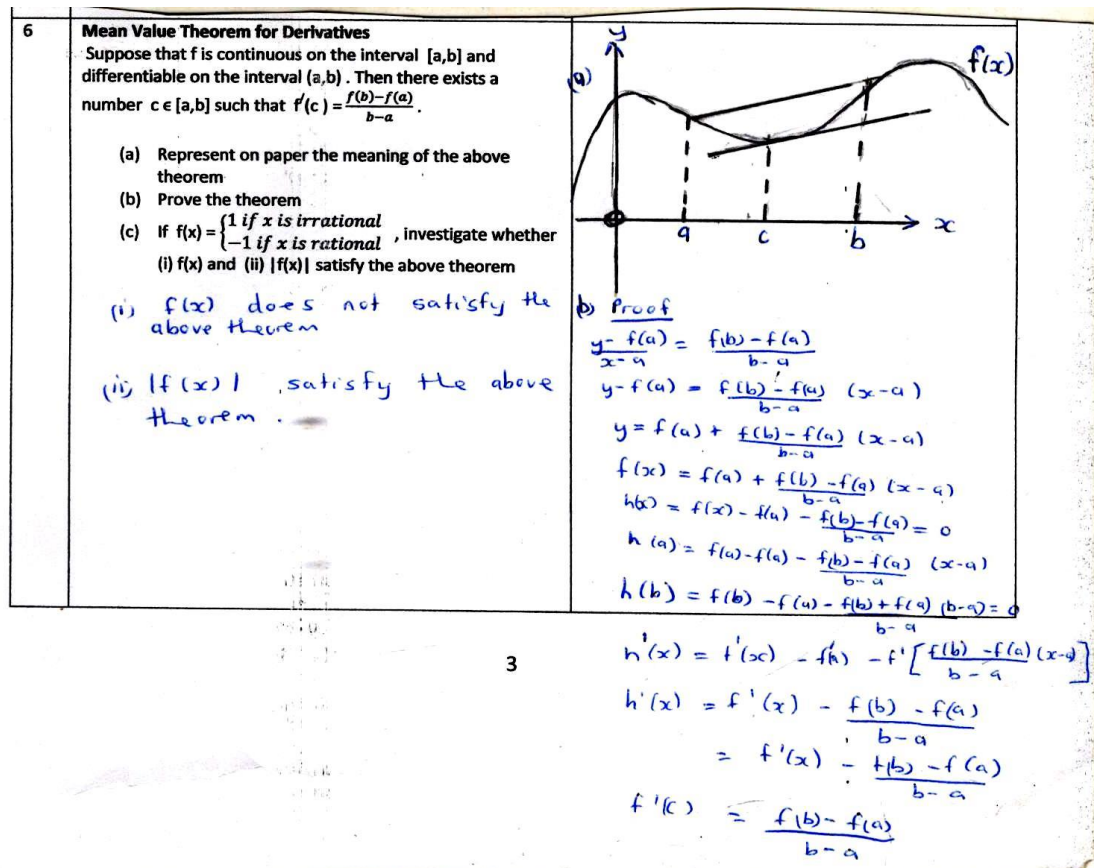 6
Mean Value Theorem for Derivatives
Suppose that f is continuous on the interval [a,b] and
differentiable on the interval (a,b) . Then there exists a
number c ϵ [a,b] such that f′(c) = f(b)−f(a) / b−a .
(a) Represent on paper the meaning of the above
theorem
(b) Prove the theorem
(c) If f(x) = {1 if x is irrational
−1 if x is rational , investigate whether
(i) f(x) and (ii) |f(x)| satisfy the above theorem
(i) f(x) does not satisfy the
above theorem
(ii) |f(x)| , satisfy the above
theorem .
(a)
y
f(x)
a c b x
b) Proof
y - f(a) / x - a = f(b) - f(a) / b - a
y - f(a) = f(b) - f(a) / b - a (x - a)
y = f(a) + f(b) - f(a) / b - a (x - a)
f(x) = f(a) + f(b) - f(a) / b - a (x - a)
h(x) = f(x) - f(a) - f(b) - f(a) / b - a = 0
h(a) = f(a) - f(a) - f(b) - f(a) / b - a (x - a)
h(b) = f(b) - f(a) - f(b) + f(a) / b - a (b - a) = 0
h'(x) = f'(x) - f'(a) - f' [ f(b) - f(a) / b - a (x - a) ]
h'(x) = f'(x) - f(b) - f(a) / b - a
= f'(x) - f(b) - f(a) / b - a
f'(c) = f(b) - f(a) / b - a
3